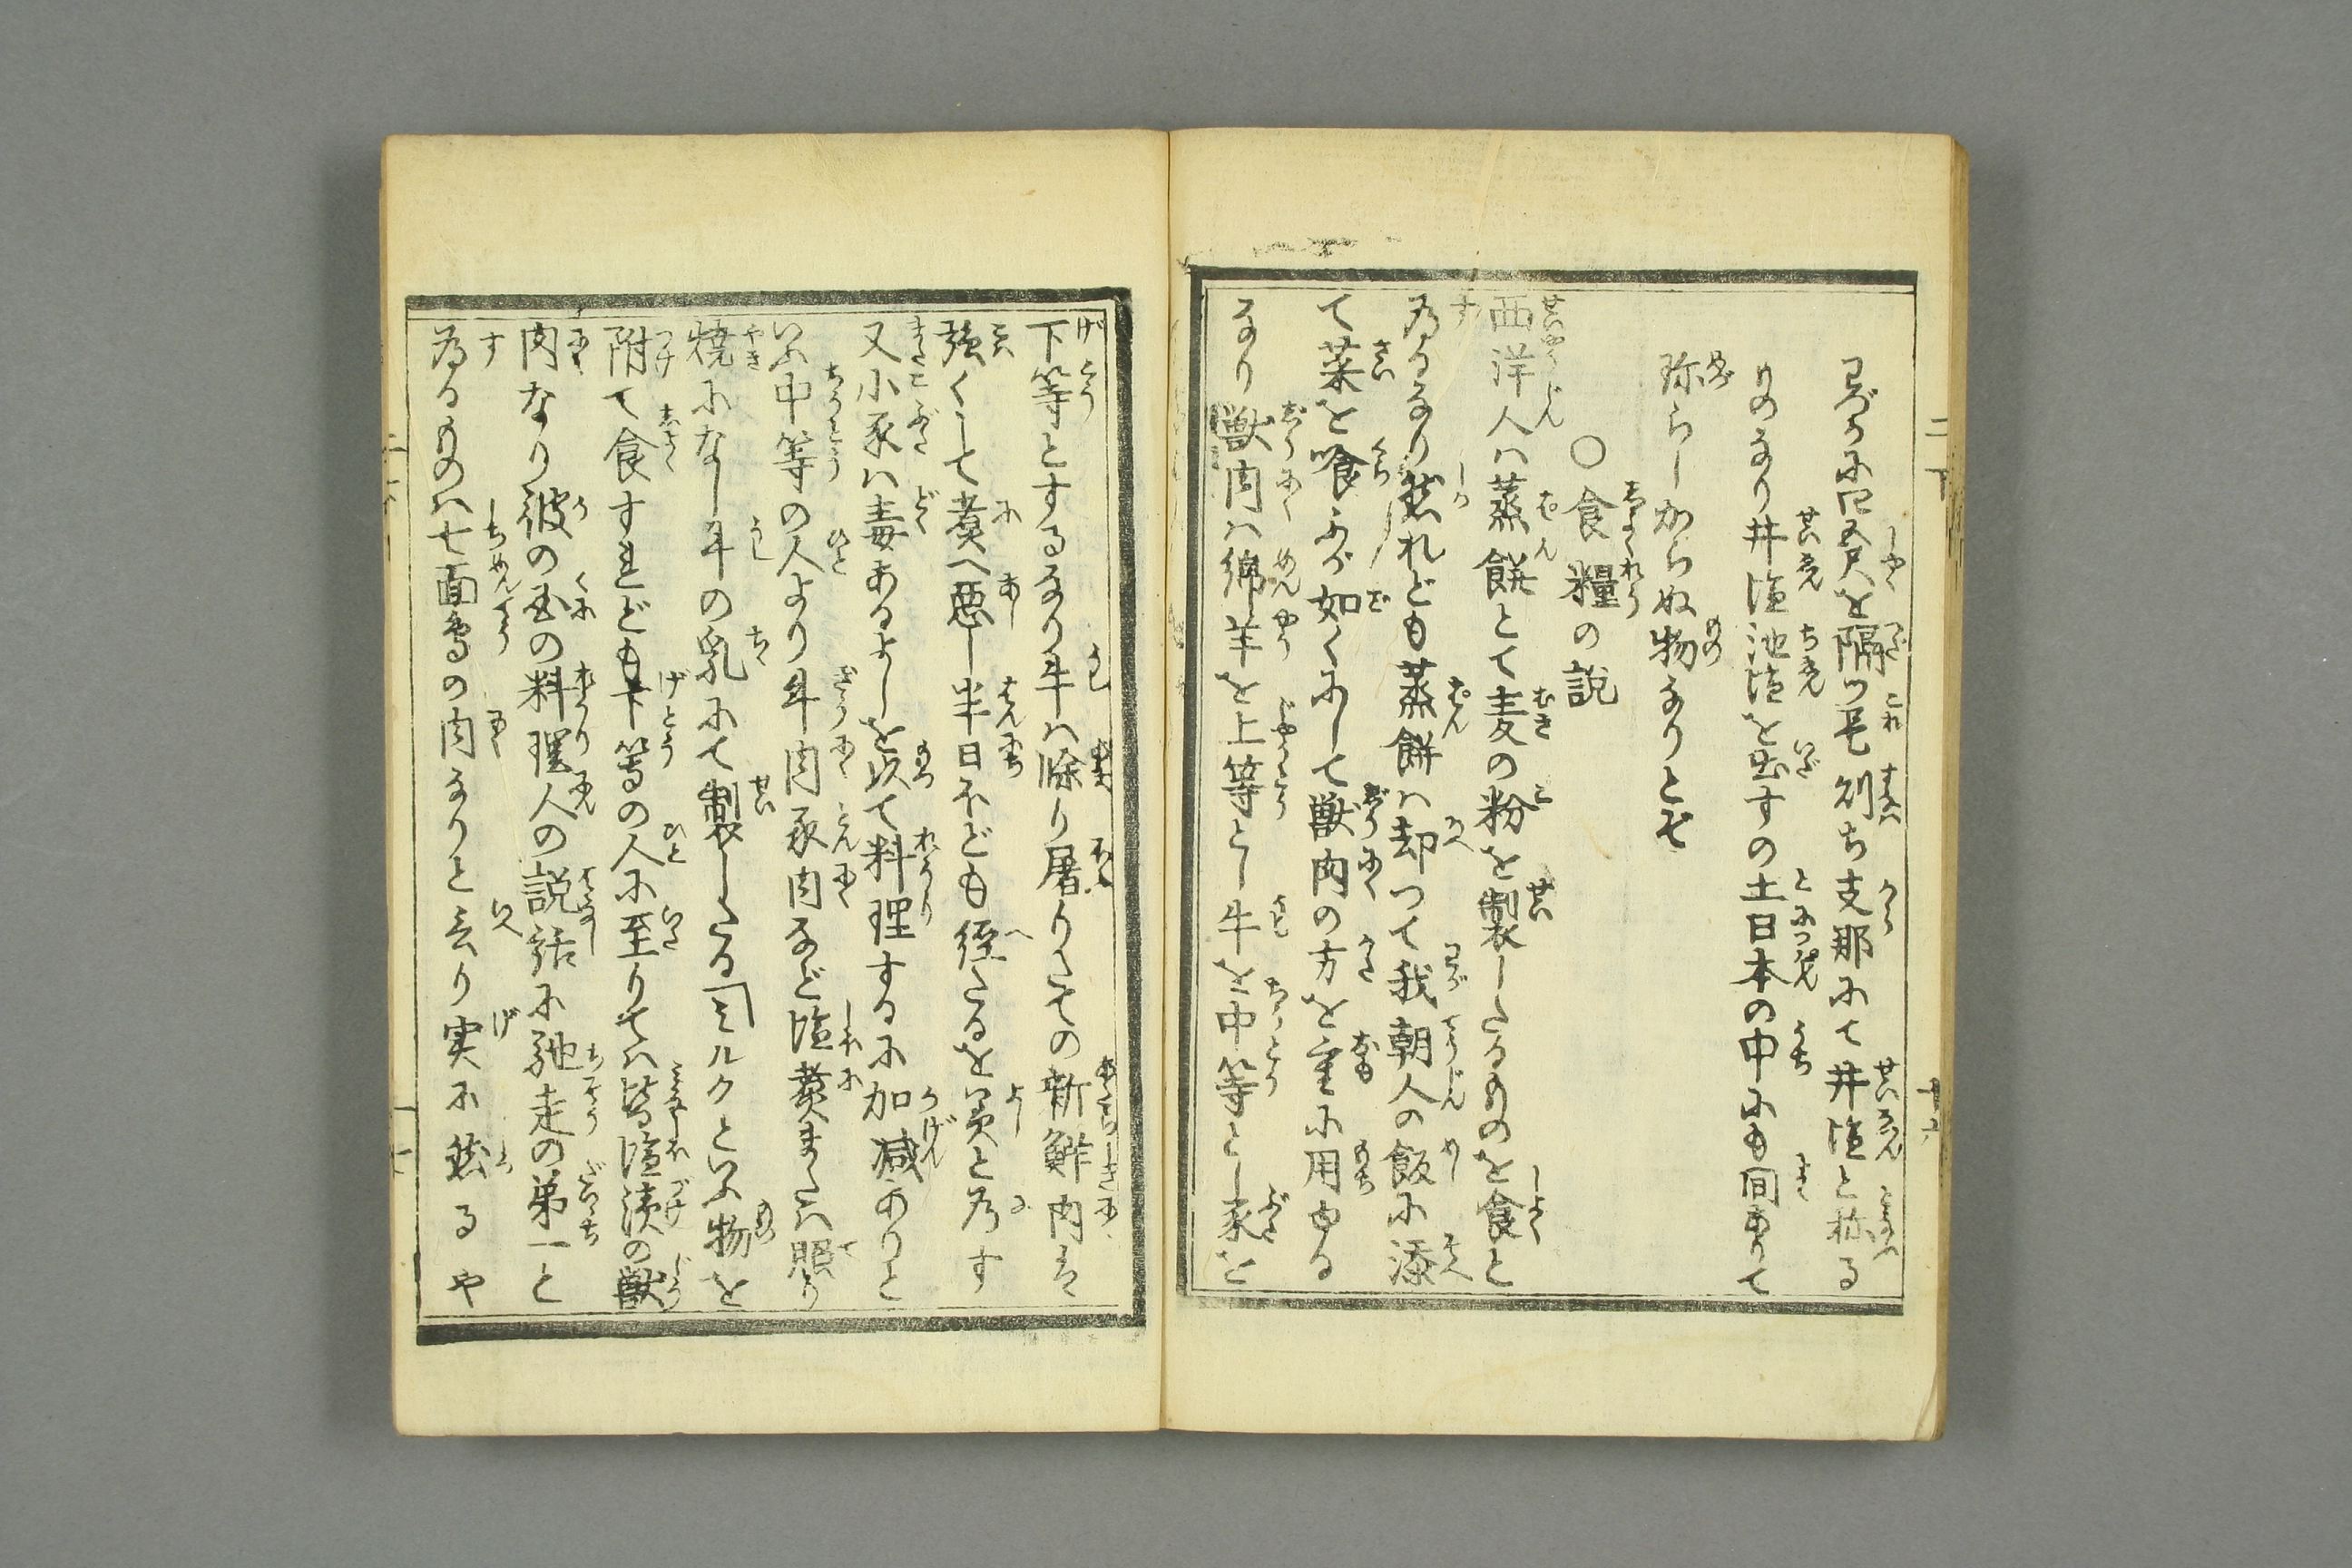 わづかに四五尺を隔つ是則ち支那にて井塩と称る
ものなり井塩池塩を出すの土日本の中にも間ありて
珍らしからぬ物なりとぞ
○食糧の説
西洋人ハ蒸餅とて麦の粉を製したるものを食と
為るなり然れども蒸餅ハ却つて我朝人の飯に添
て菜を喰ふが如くにして獣肉の方を重に用ゆる
なり獣肉ハ綿羊を上等とし牛を中等とし豕を
下等とするなり牛ハ餘り屠りたての新鮮肉ハ
強くして煮へ悪し半日ほども経たるを良と為す
又小豕ハ毒あるよしを以て料理するに加減ありと
いふ中等の人より牛肉豕肉など塩煮または照り
焼になし牛の乳にて製したる「ミルクといふ物を
附て食すれども下等の人に至りてハ皆塩漬の獣
肉なり彼の国の料理人の説話に馳走の第一と
為るものハ七面鳥の肉なりと云り実に然るや